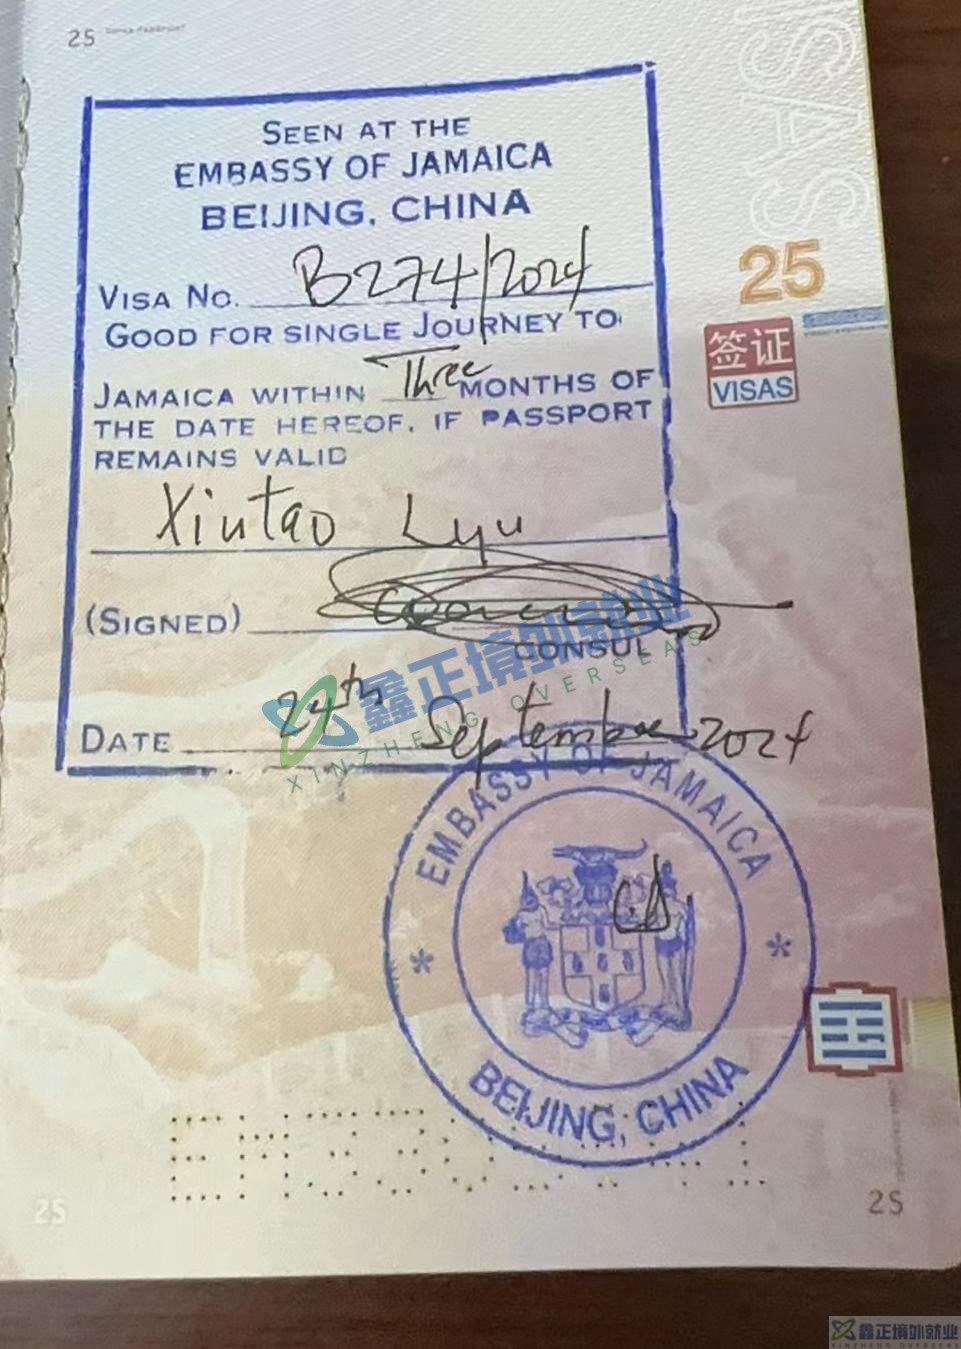 25
SEEN AT THE
EMBASSY OF JAMAICA
BEIJING, CHINA
VISA NO. B274/2024
GOOD FOR SINGLE JOURNEY TO
JAMAICA WITHIN Three MONTHS OF
THE DATE HEREOF, IF PASSPORT
REMAINS VALID
Xintao Lyu
(SIGNED)
CONSUL
DATE 24th September 2024
25
签证
VISAS
鑫正境外就业
XINZHENG OVERSEAS
EMBASSY OF JAMAICA
* *
BEIJING, CHINA
25
25
鑫正境外就业
XINZHENG OVERSEAS